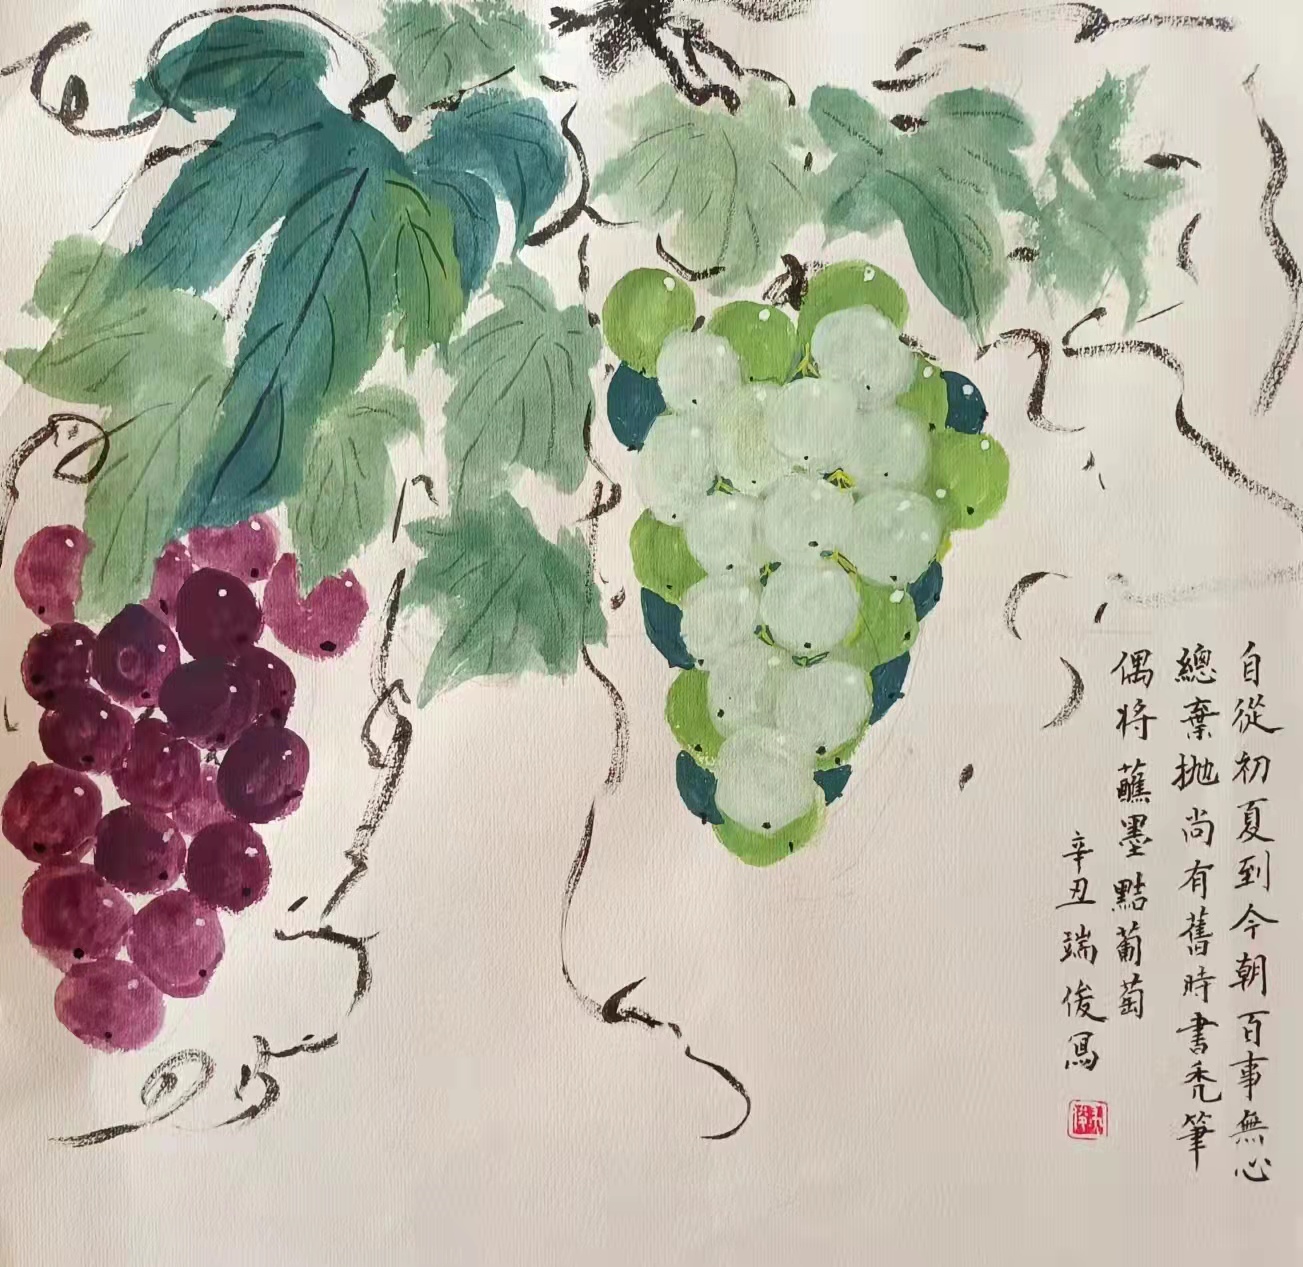 自從初夏到今朝百事無心
總棄抛尚有舊時書秃筆
偶将蘸墨點葡萄
辛丑端俊寫